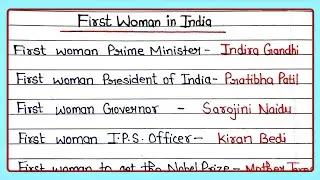 First Woman in India
First woman Prime Minister- Indira Gandhi
First woman President of India- Pratibha Patil
First woman Governor - Sarojini Naidu
First woman I.P.S. Officer- Kiran Bedi
First woman to get the Nobel Prize- Mother